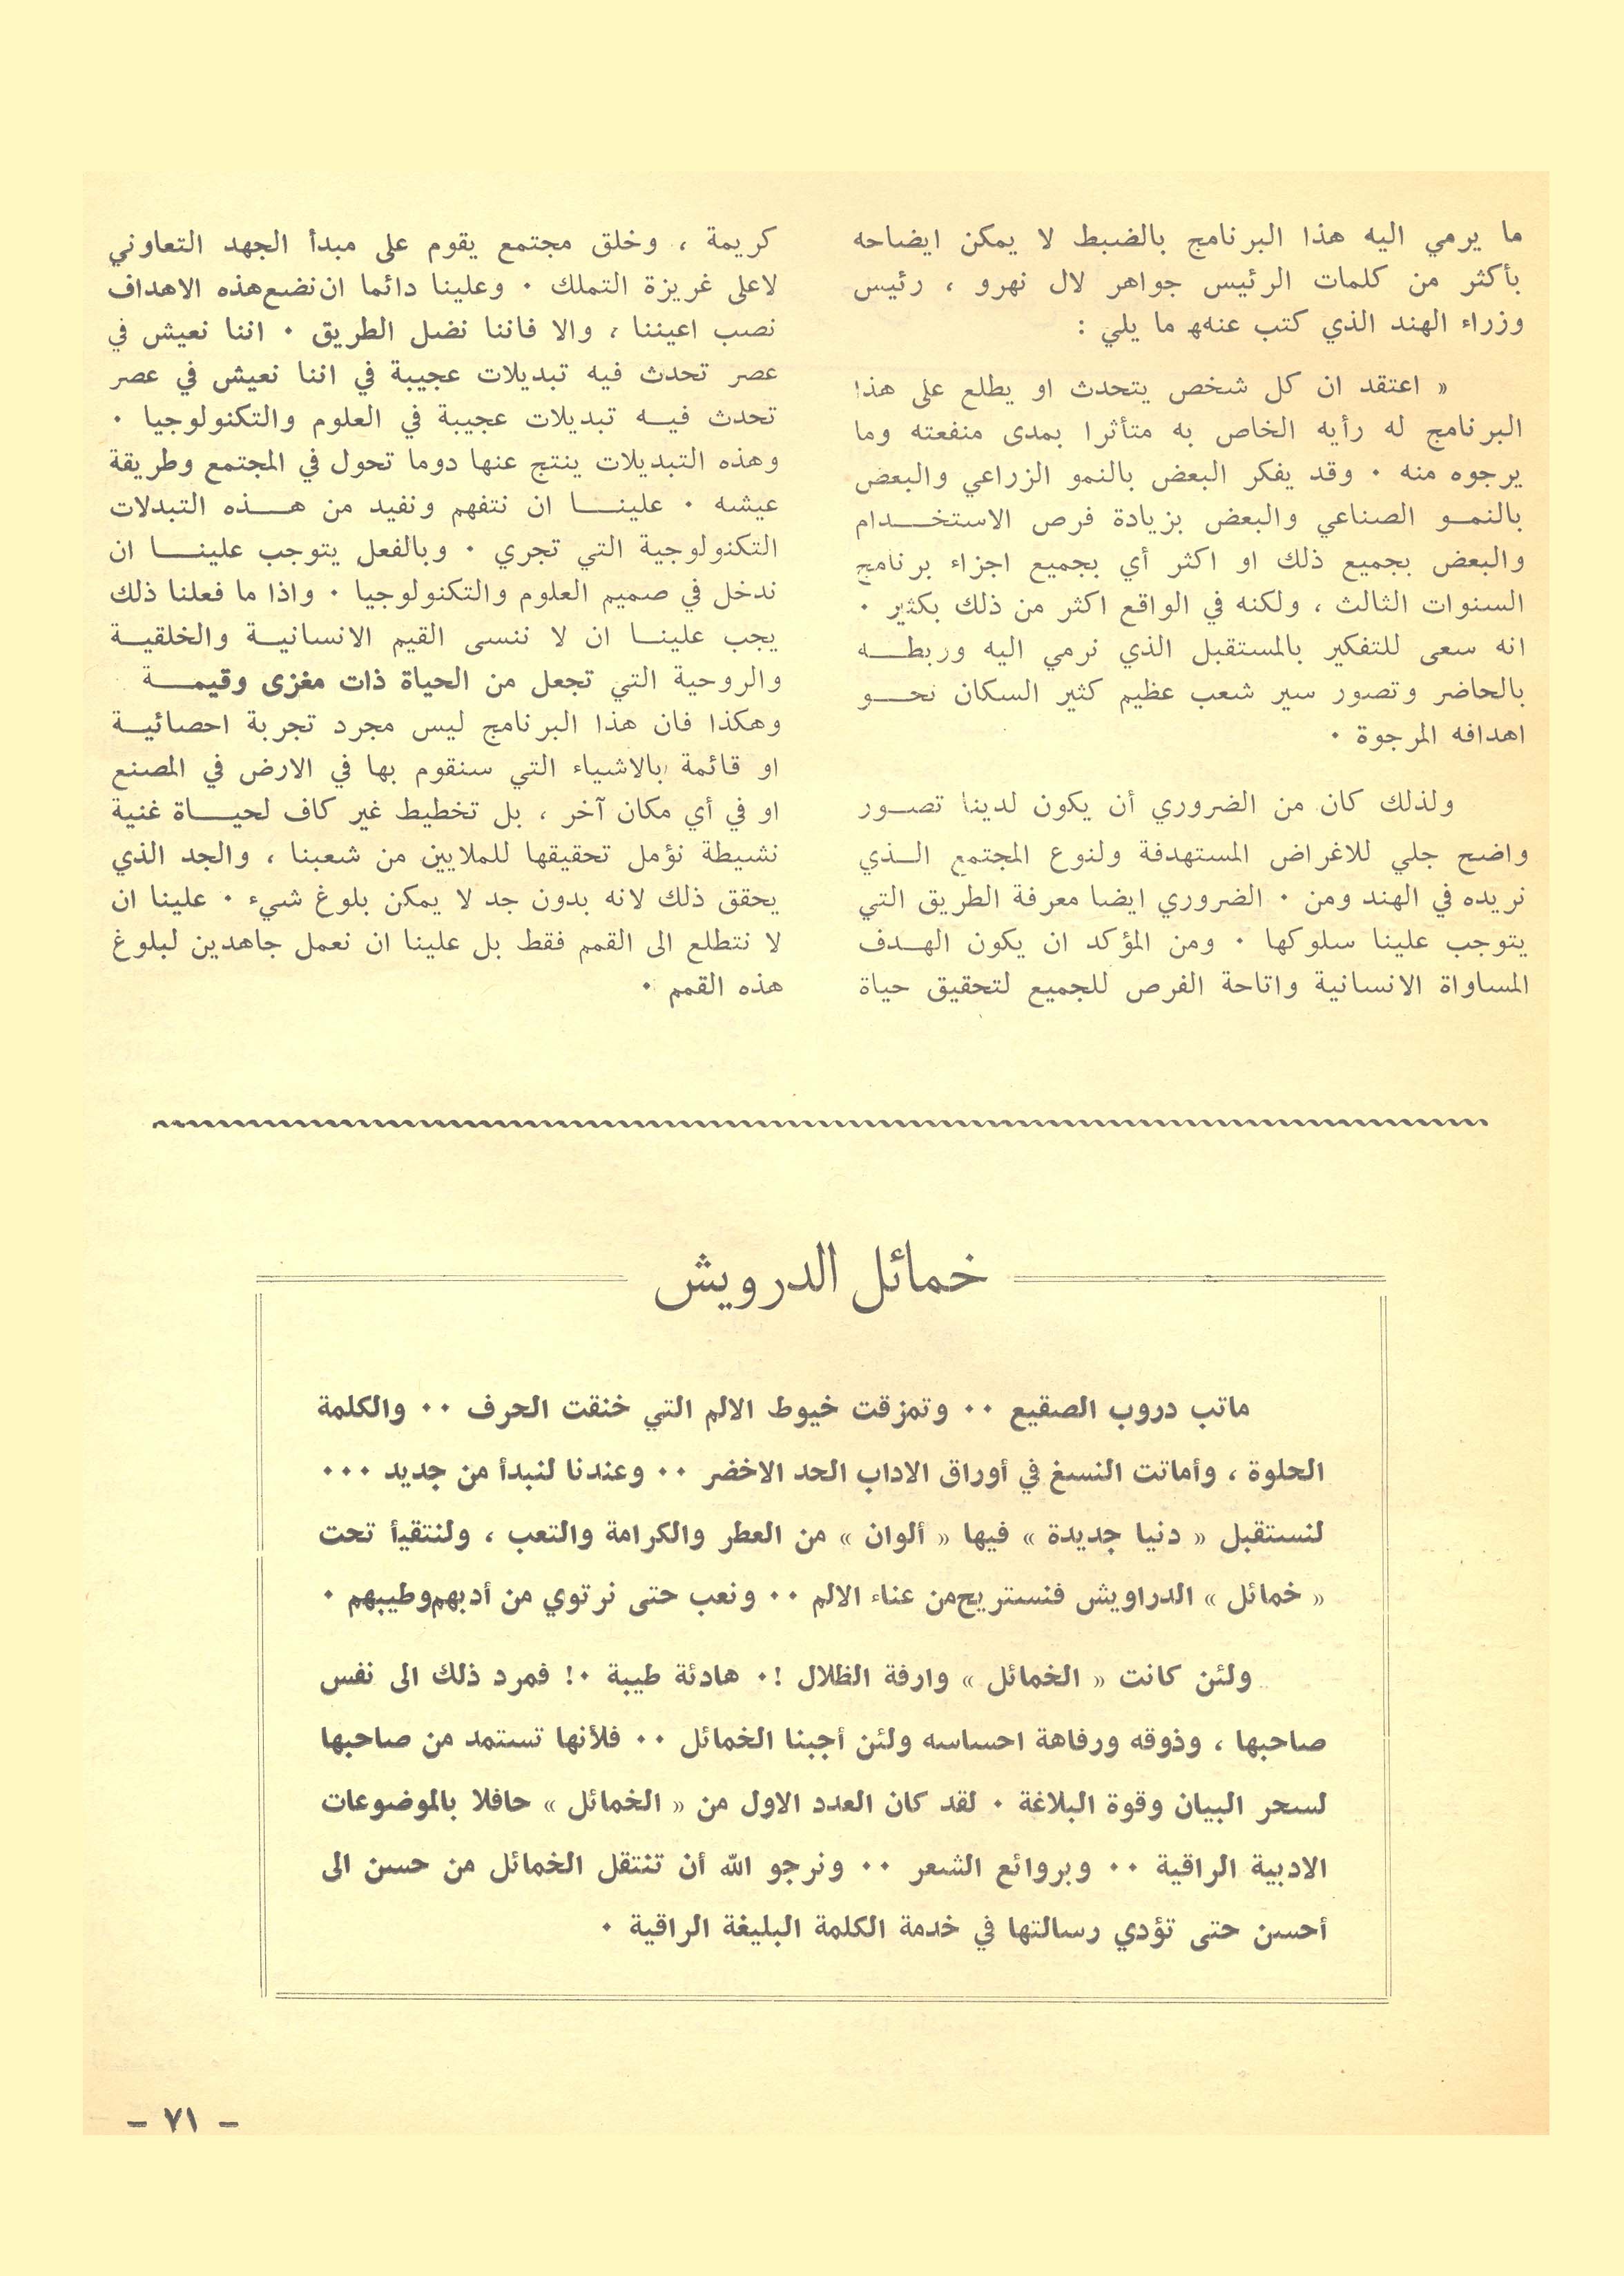 ما يرمي اليه هذا البرنامج بالضبط لا يمكن ايضاحه
بأكثر من كلمات الرئيس جواهر لال نهرو ، رئيس
وزراء الهند الذي كتب عنه ما يلي :
« اعتقد ان كل شخص يتحدث او يطلع على هذا
البرنامج له رأيه الخاص به متأثرا بمدى منفعته وما
يرجوه منه ٠ وقد يفكر البعض بالنمو الزراعي والبعض
بالنمو الصناعي والبعض بزيادة فرص الاستخدام
والبعض بجميع ذلك او اكثر أي بجميع اجزاء برنامج
السنوات الثالث ، ولكنه في الواقع اكثر من ذلك بكثير ٠
انه سعى للتفكير بالمستقبل الذي نرمي اليه وربطه
بالحاضر وتصور سير شعب عظيم كثير السكان نحو
اهدافه المرجوة ٠
ولذلك كان من الضروري أن يكون لدينا تصور
واضح جلي للاغراض المستهدفة ولنوع المجتمع الذي
نريده في الهند ومن ٠ الضروري ايضا معرفة الطريق التي
يتوجب علينا سلوكها ٠ ومن المؤكد ان يكون الهدف
المساواة الانسانية واتاحة الفرص للجميع لتحقيق حياة
كريمة ، وخلق مجتمع يقوم على مبدأ الجهد التعاوني
لاعلى غريزة التملك ٠ وعلينا دائما ان نضع هذه الاهداف
نصب اعيننا ، والا فاننا نضل الطريق ٠ اننا نعيش في
عصر تحدث فيه تبديلات عجيبة في اننا نعيش في عصر
تحدث فيه تبديلات عجيبة في العلوم والتكنولوجيا ٠
وهذه التبديلات ينتج عنها دوما تحول في المجتمع وطريقة
عيشه ٠ علينا ان نتفهم ونفيد من هذه التبدلات
التكنولوجية التي تجري ٠ وبالفعل يتوجب علينا ان
ندخل في صميم العلوم والتكنولوجيا ٠ واذا ما فعلنا ذلك
يجب علينا ان لا ننسى القيم الانسانية والخلقية
والروحية التي تجعل من الحياة ذات مغزى وقيمة
وهكذا فان هذا البرنامج ليس مجرد تجربة احصائية
او قائمة بالاشياء التي سنقوم بها في الارض في المصنع
او في أي مكان آخر ، بل تخطيط غير كاف لحياة غنية
نشيطة نؤمل تحقيقها للملايين من شعبنا ، والجد الذي
يحقق ذلك لانه بدون جد لا يمكن بلوغ شيء ٠ علينا ان
لا نتطلع الى القمم فقط بل علينا ان نعمل جاهدين لبلوغ
هذه القمم ٠
خمائل الدرويش
ماتب دروب الصقيع ٠٠ وتمزقت خيوط الالم التي خنقت الحرف ٠٠ والكلمة
الحلوة ، وأماتت النسغ في أوراق الاداب الحد الاخضر ٠٠ وعندنا لنبدأ من جديد ٠٠٠
لنستقبل « دنيا جديدة » فيها « ألوان » من العطر والكرامة والتعب ، ولنتقيأ تحت
« خمائل » الدراويش فنستريح من عناء الالم ٠٠ ونعب حتى نرتوي من أدبهم وطيبهم ٠
ولئن كانت « الخمائل » وارفة الظلال !٠ هادئة طيبة ٠! فمرد ذلك الى نفس
صاحبها ، وذوقه ورفاهة احساسه ولئن أجبنا الخمائل ٠٠ فلأنها تستمد من صاحبها
لسحر البيان وقوة البلاغة ٠ لقد كان العدد الاول من « الخمائل » حافلا بالموضوعات
الادبية الراقية ٠٠ وبروائع الشعر ٠٠ ونرجو الله أن تنتقل الخمائل من حسن الى
أحسن حتى تؤدي رسالتها في خدمة الكلمة البليغة الراقية ٠
– ٧١ –